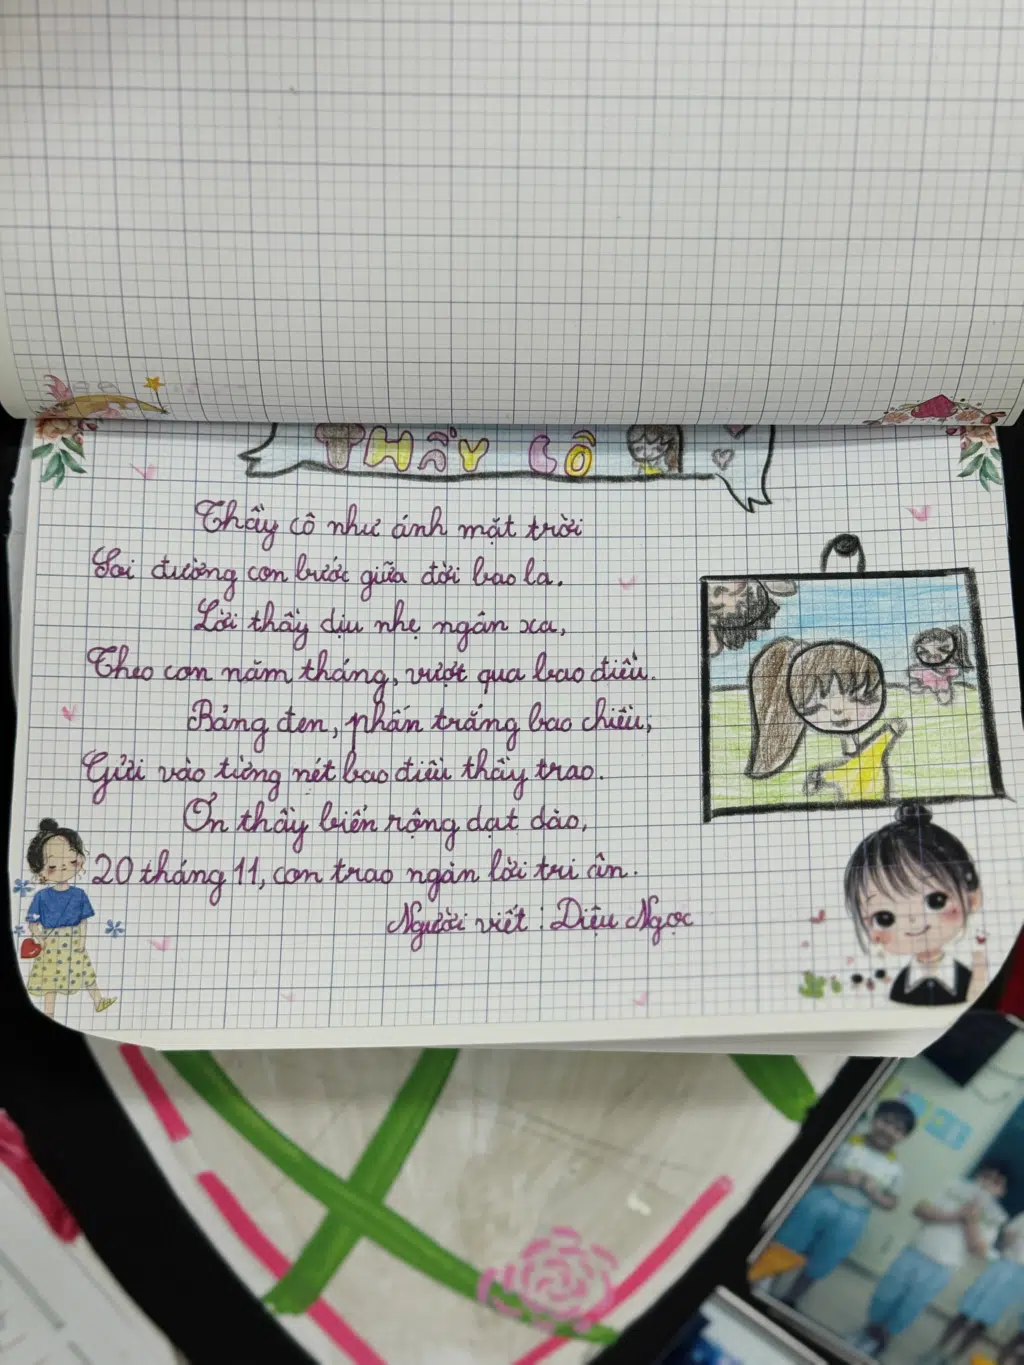 THẦY CÔ
Thầy cô như ánh mặt trời
Soi đường con bước giữa đời bao la.
Lời thầy dịu nhẹ ngân xa,
Theo con năm tháng, vượt qua bao điều.
Bảng đen, phấn trắng bao chiều,
Gửi vào từng nét bao điều thầy trao.
Ơn thầy biển rộng dạt dào,
20 tháng 11, con trao ngàn lời tri ân.
Người viết : Diệu Ngọc